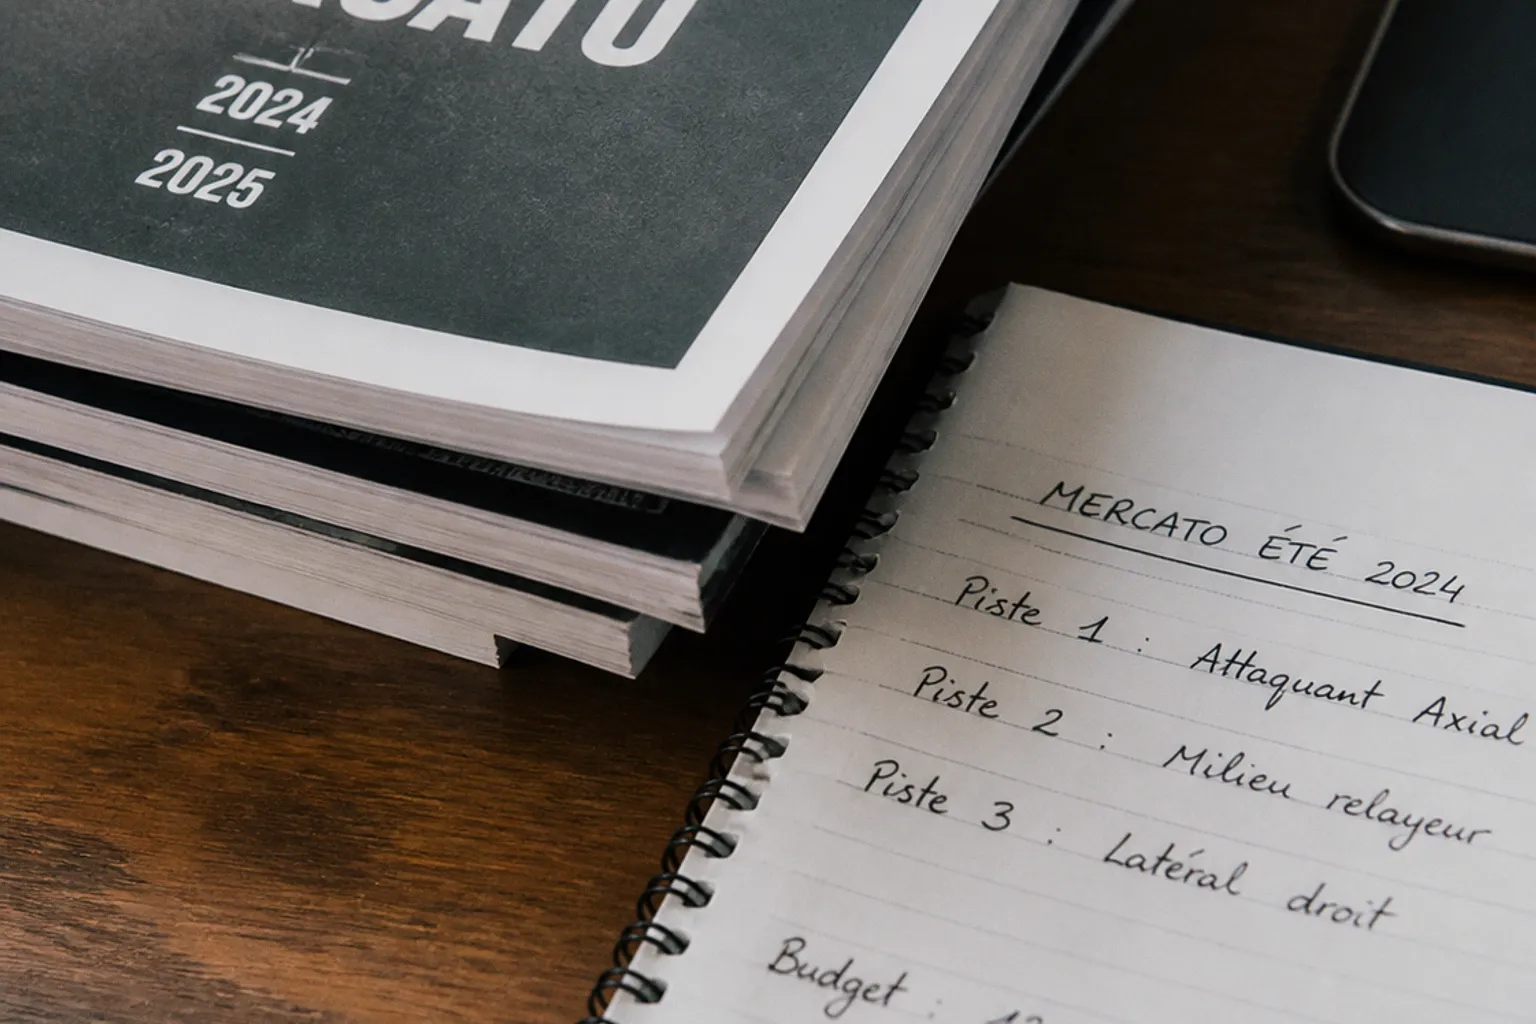 2024
2025
MERCATO ÉTÉ 2024
Piste 1 : Attaquant Axial
Piste 2 : Milieu relayeur
Piste 3 : Latéral droit
Budget :